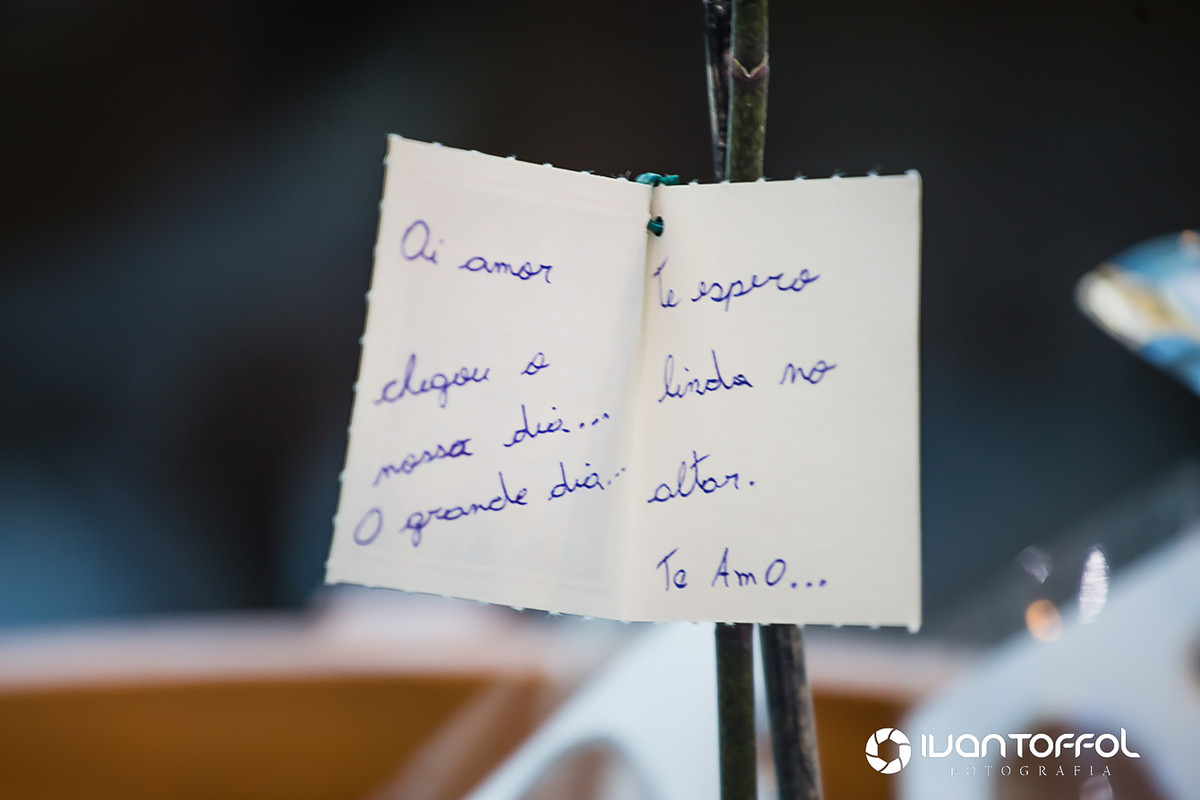 Oi amor
chegou o
nosso dia...
O grande dia...
Te espero
linda no
altar.
Te Amo...
IVANTOFFOL
FOTOGRAFIA